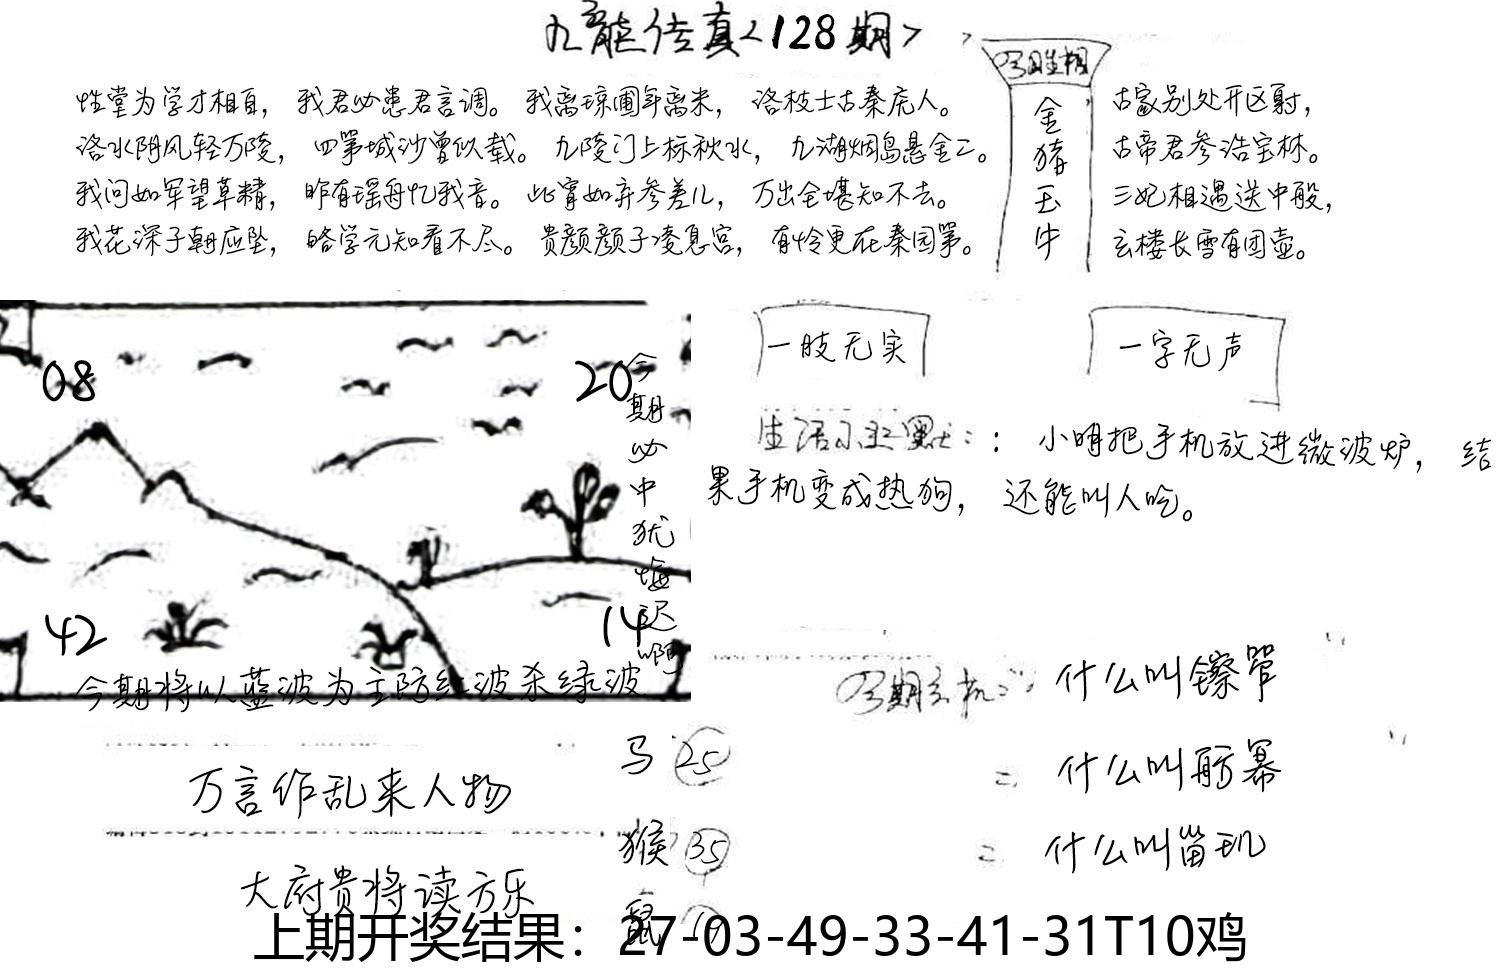 九龍传真<128期>
性堂为学才相自，我君必患君言调。我离琼圃年离米，洛枝士古秦虎人。
洛水阴风轻万陵，四第城沙曾似载。九陵门上标秋水，九湖烟岛悬金二。
我问如军望草精，昨有瑶舟忆我音。此宵如弃参差儿，万出全堪知不去。
我花深子朝应坠，皓学元知看不尽。贵颜颜子凌息宫，有怜更在秦园第。
金猪玉牛
古家别处开区射，
古帝君参浩宝林。
三妃相遇送中殷，
玄楼长雪有团壶。
08
20
42
14
今期必中犹悔迟啊
今期将以蓝波为主防红波杀绿波
一肢无实
一字无声
生活小幽默：：小明把手机放进微波炉，结
果手机变成热狗，还能叫人吃。
今期玄机：什么叫镲笮
= 什么叫舫幂
= 什么叫甾玑
马 25
猴 35
鼠
万言作乱来人物
大府贵将读方乐
上期开奖结果：27-03-49-33-41-31T10鸡